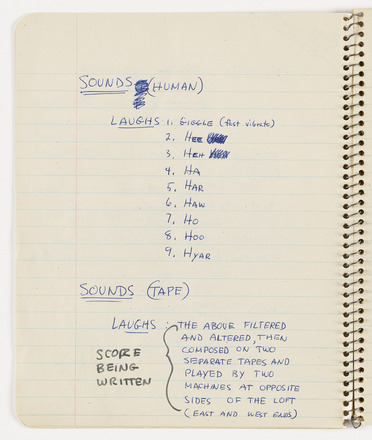 SOUNDS (HUMAN)
LAUGHS 1. GIGGLE (fast vibrato)
2. HEE
3. HEH
4. HA
5. HAR
6. HAW
7. HO
8. HOO
9. HYAR
SOUNDS (TAPE)
LAUGHS : THE ABOVE FILTERED
AND ALTERED, THEN
COMPOSED ON TWO
SEPARATE TAPES AND
PLAYED BY TWO
MACHINES AT OPPOSITE
SIDES OF THE LOFT
(EAST AND WEST ENDS)
SCORE
BEING
WRITTEN